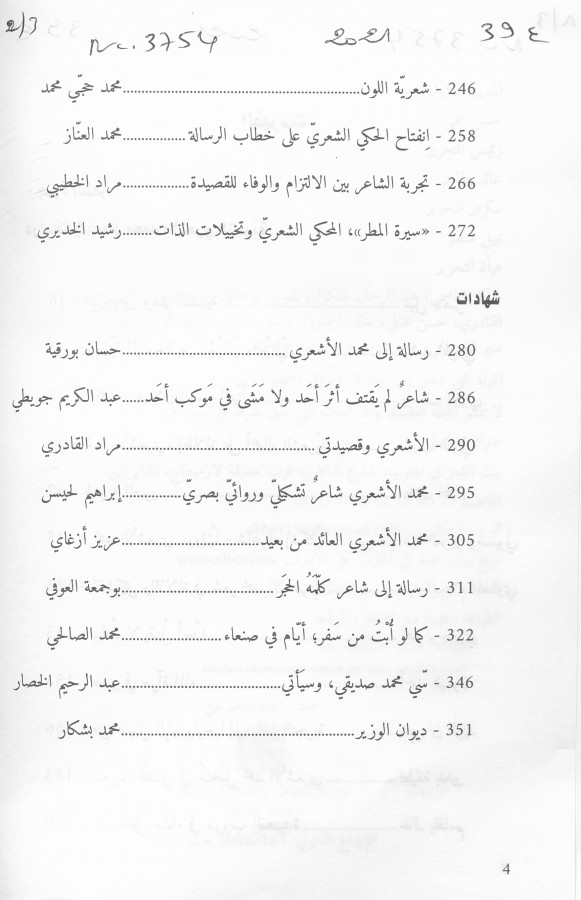 2/3
Nc. 3754
2021
39 ع
246 - شعريّة اللون................................................محمد حجّي محمد
258 - اِنفتاح الحكي الشعريّ على خطاب الرسالة................محمد العنّاز
266 - تجربة الشاعر بين الالتزام والوفاء للقصيدة................مراد الخطيبي
272 - «سيرة المطر»، المحكي الشعريّ وتخييلات الذات.......رشيد الخديري
شهادات
280 - رسالة إلى محمد الأشعري................................حسان بورقية
286 - شاعرٌ لم يَقتف أثرَ أحَد ولا مَشَى في مَوكب أحَد......عبد الكريم جويطي
290 - الأشعري وقصيدتي................................مراد القادري
295 - محمد الأشعري شاعرٌ تشكيليّ وروائيّ بصريّ............إبراهيم لحيسن
305 - محمد الأشعري العائد من بعيد............................عزيز أزغاي
311 - رسالة إلى شاعر كلّمَهُ الحجَر................................بوجمعة العوفي
322 - كما لو أُبْتُ من سَفر؛ أيّام في صنعاء....................محمد الصالحي
346 - سّي محمد صديقي، وسيَأتي................................عبد الرحيم الخصار
351 - ديوان الوزير................................................محمد بشكار
4